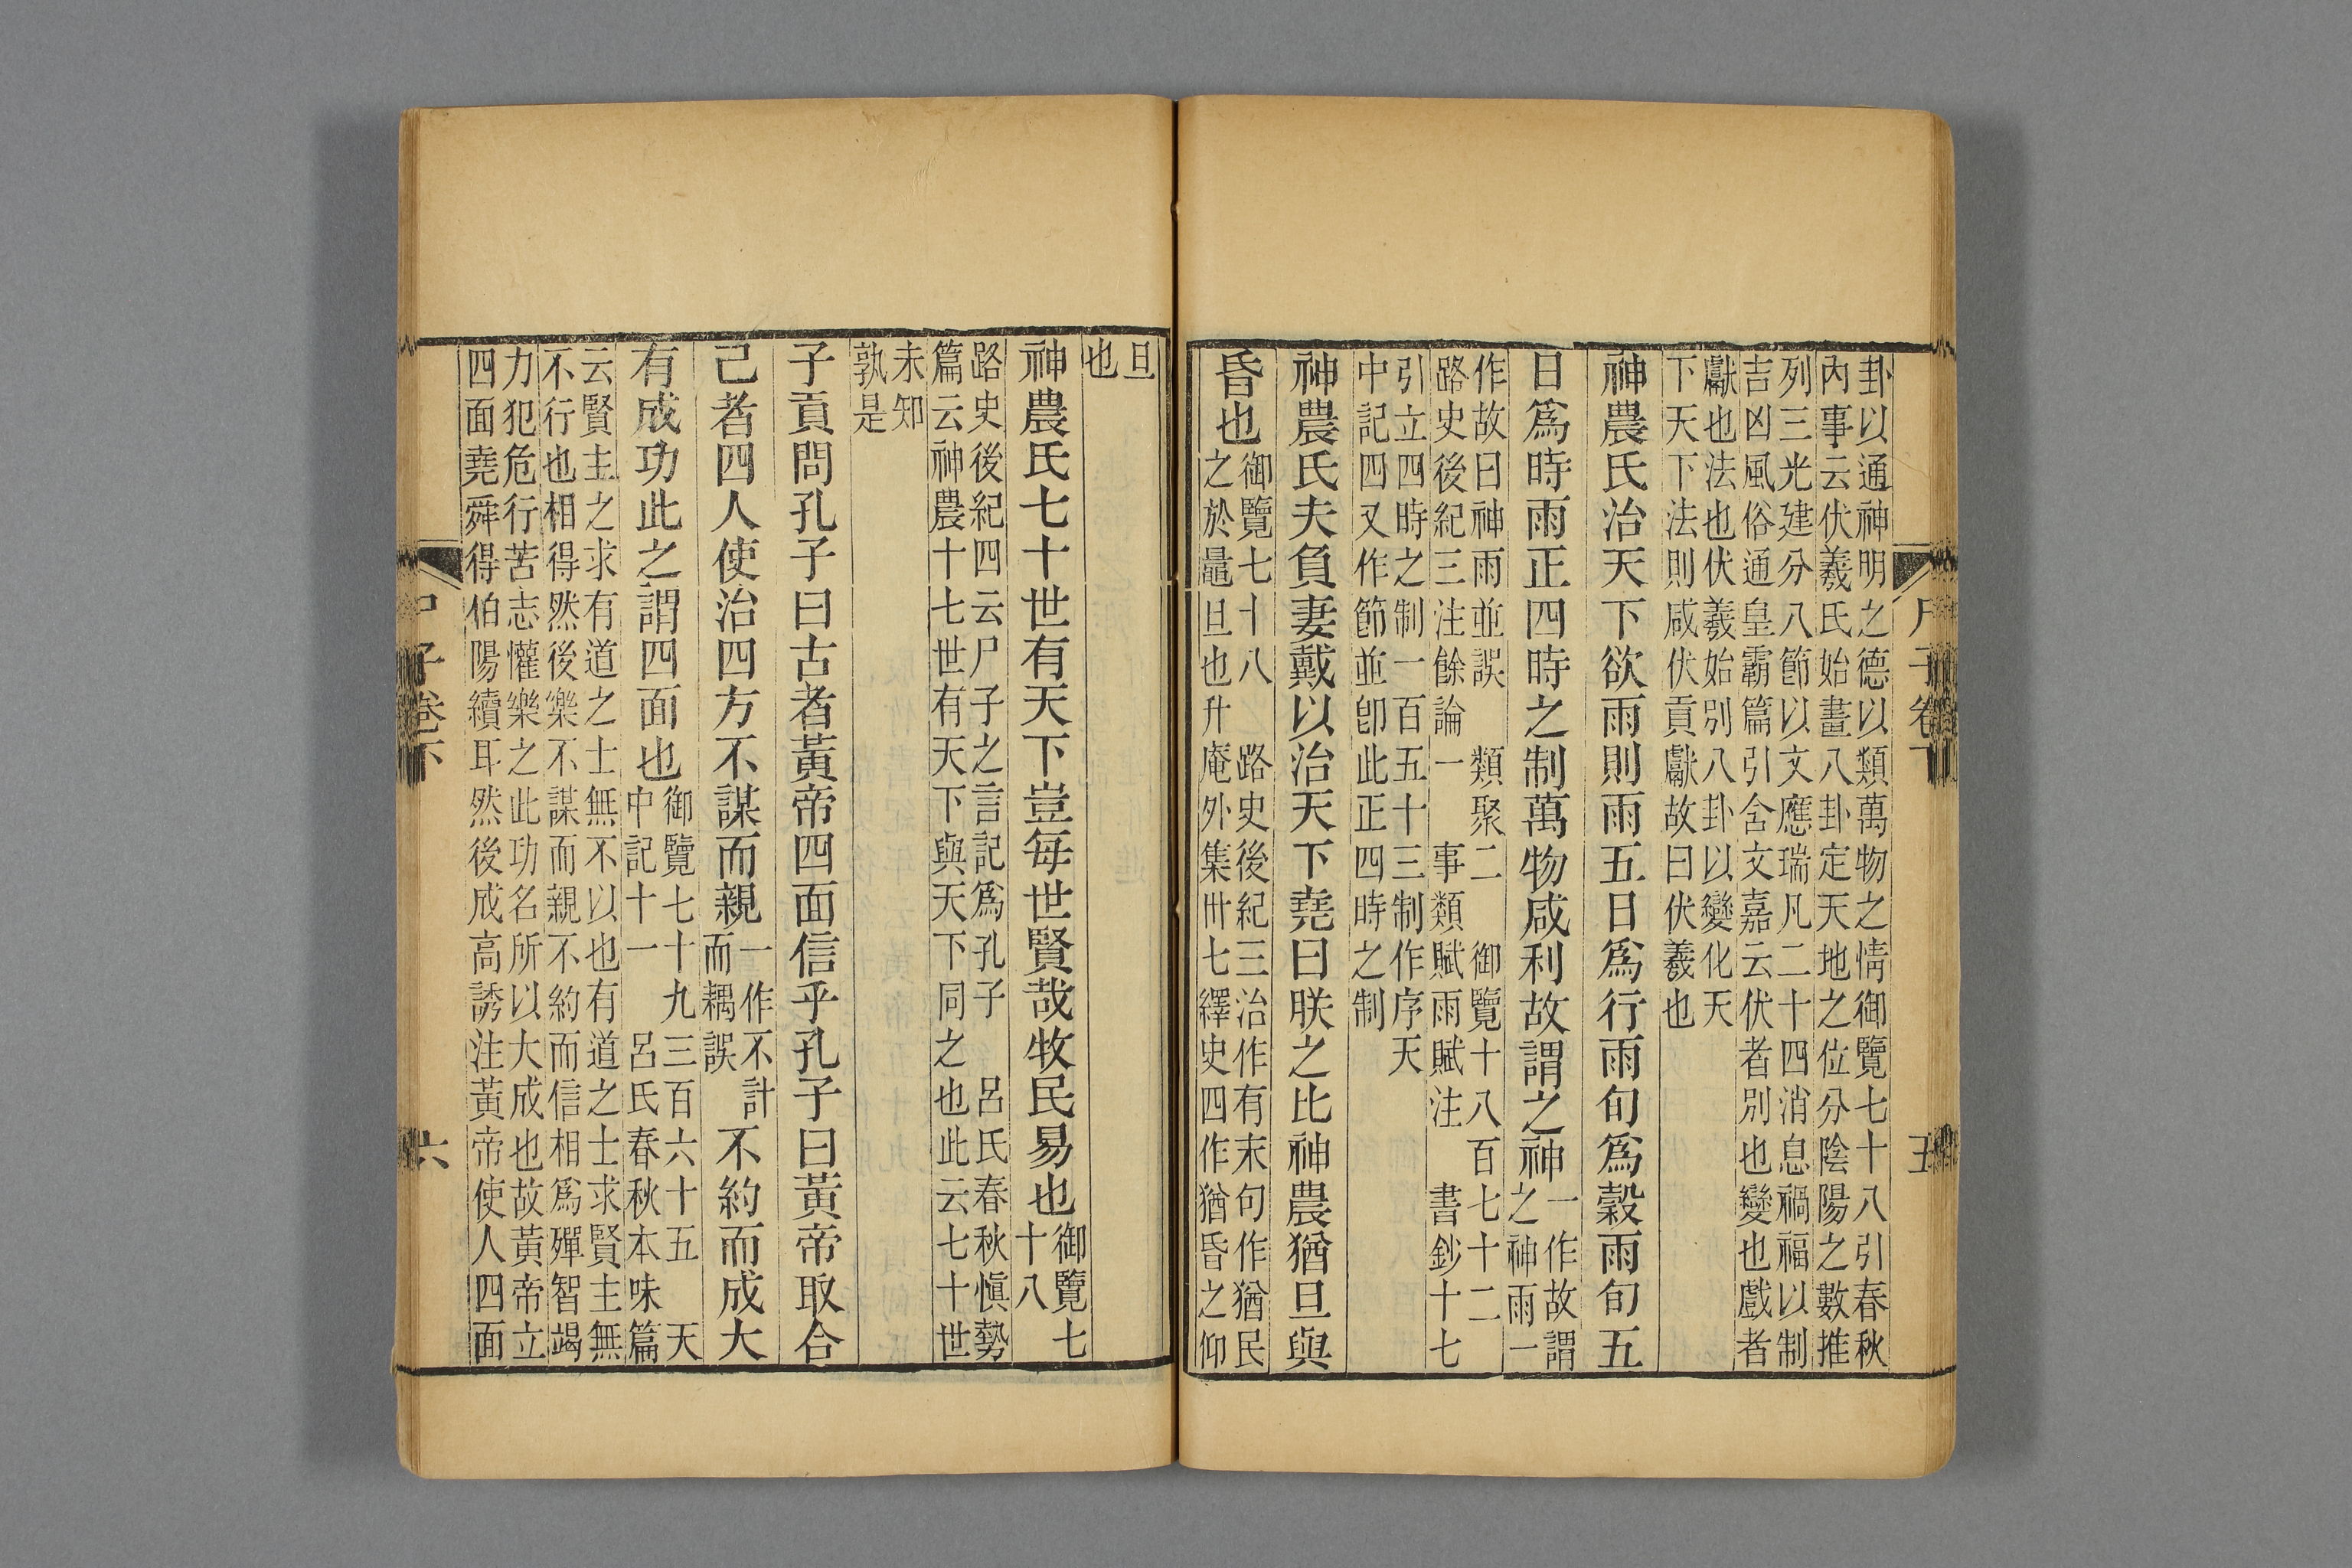 卦以通神明之德以類萬物之情御覽七十八引春秋
內事云伏羲氏始畫八卦定天地之位分陰陽之數推
列三光建分八節以文應瑞凡二十四消息禍福以制
吉凶風俗通皇霸篇引含文嘉云伏者別也變也戲者
獻也法也伏羲始別八卦以變化天
下天下法則咸伏貢獻故曰伏羲也
神農氏治天下欲雨則雨五日爲行雨旬爲穀雨旬五
日爲時雨正四時之制萬物咸利故謂之神一作故謂
之神雨一
作故曰神雨並誤 類聚二 御覽十八百七十二
路史後紀三注餘論一 事類賦雨賦注 書鈔十七
引立四時之制一百五十三制作序天
中記四又作節並卽此正四時之制
神農氏夫負妻戴以治天下堯曰朕之比神農猶旦與
昏也御覽七十八 路史後紀三治作有末句作猶民
之於鼂旦也升庵外集卌七繹史四作猶昏之仰
尸子卷下 五
旦
也
神農氏七十世有天下豈每世賢哉牧民易也御覽七
十八
路史後紀四云尸子之言記爲孔子 呂氏春秋愼勢
篇云神農十七世有天下與天下同之也此云七十世
未知
孰是
子貢問孔子曰古者黃帝四面信乎孔子曰黃帝取合
己者四人使治四方不謀而親一作不計
而耦誤不約而成大
有成功此之謂四面也御覽七十九三百六十五 天
中記十一 呂氏春秋本味篇
云賢主之求有道之士無不以也有道之士求賢主無
不行也相得然後樂不謀而親不約而信相爲殫智竭
力犯危行苦志懽樂之此功名所以大成也故黃帝立
四面堯舜得伯陽續耳然後成高誘注黃帝使人四面
子卷下 六